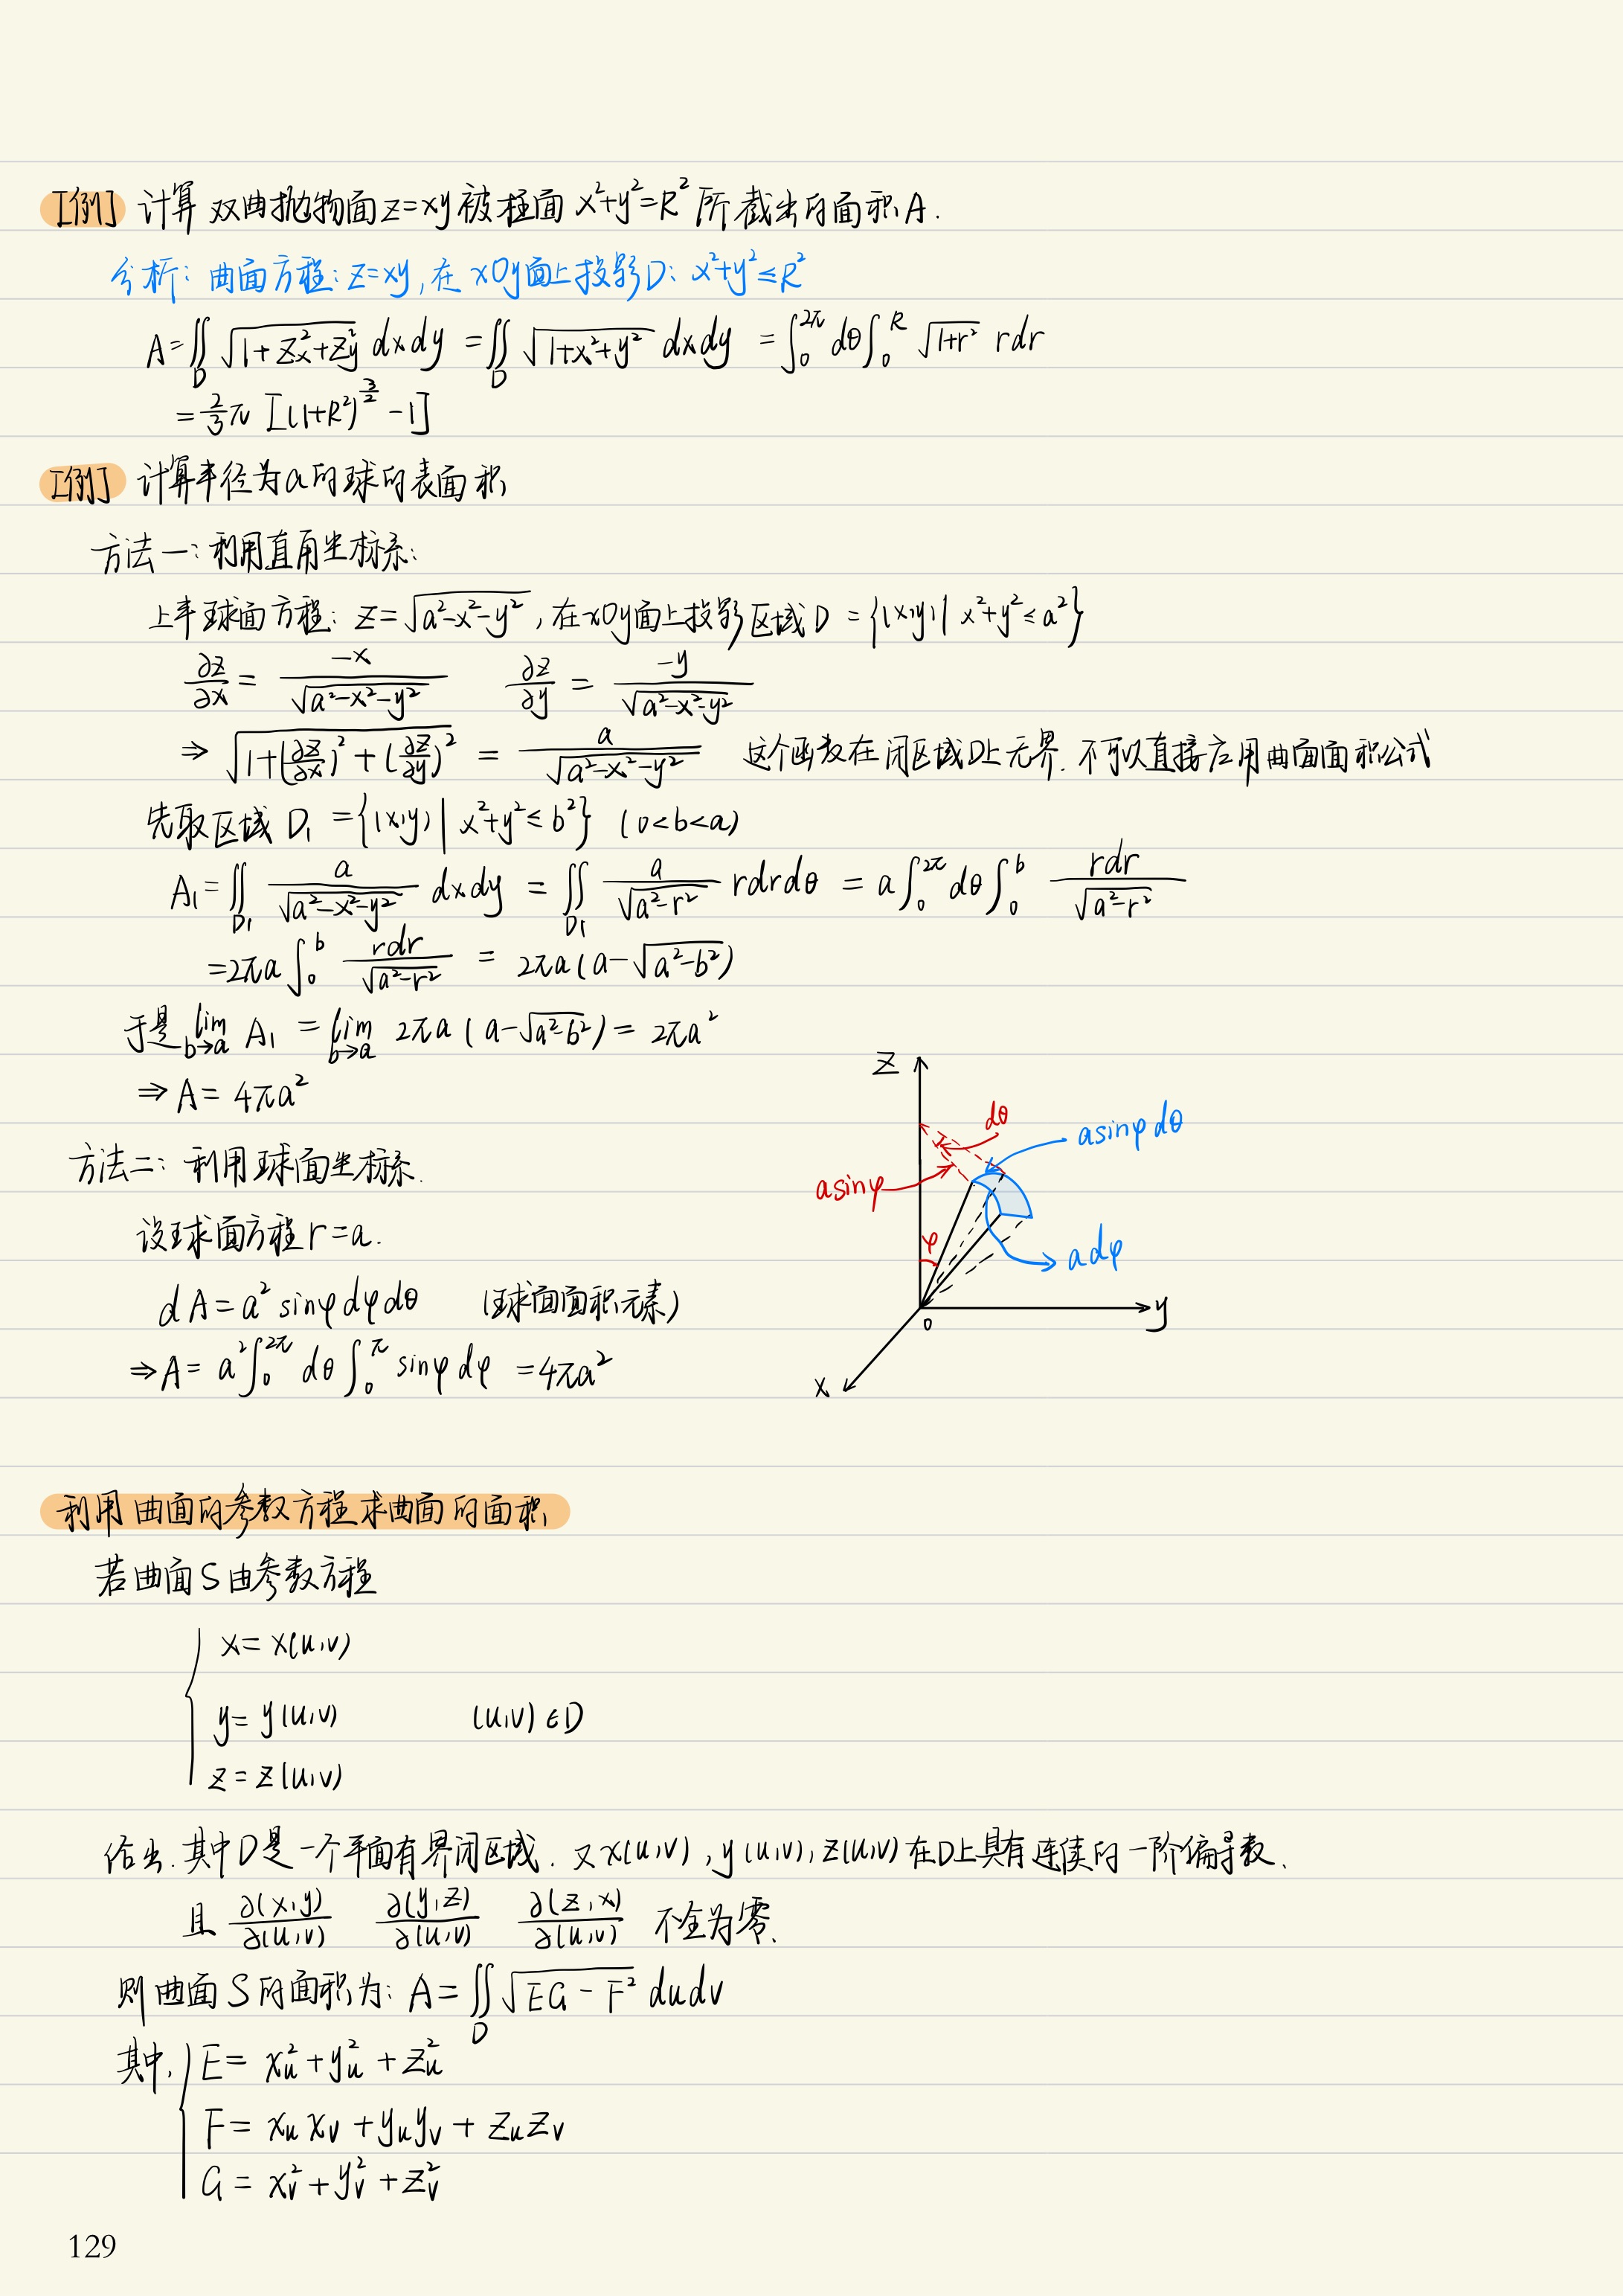 [例] 计算双曲抛物面z=xy被柱面x²+y²=R²所截出的面积A.
分析: 曲面方程: z=xy, 在xOy面上投影D: x²+y²≤R²
A=∬_D √(1+z_x²+z_y²) dxdy = ∬_D √(1+x²+y²) dxdy = ∫₀^{2π} dθ ∫₀^R √(1+r²) rdr
= 2/3 π [(1+R²)^{3/2} -1]
[例] 计算半径为a的球的表面积
方法一: 利用直角坐标系:
上半球面方程: z=√(a²-x²-y²), 在xOy面上投影区域D={(x,y)| x²+y²≤a²}
∂z/∂x = -x/√(a²-x²-y²) ∂z/∂y = -y/√(a²-x²-y²)
⇒ √(1+(∂z/∂x)²+(∂z/∂y)²) = a/√(a²-x²-y²) 这个函数在闭区域D上无界. 不可以直接应用曲面面积公式
先取区域 D₁={(x,y)| x²+y²≤b²} (0<b<a)
A₁=∬_{D₁} a/√(a²-x²-y²) dxdy = ∬_{D₁} a/√(a²-r²) rdrdθ = a∫₀^{2π} dθ ∫₀^b rdr/√(a²-r²)
=2πa ∫₀^b rdr/√(a²-r²) = 2πa(a-√(a²-b²))
于是 lim_{b→a} A₁ = lim_{b→a} 2πa(a-√(a²-b²)) = 2πa²
⇒ A= 4πa²
方法二: 利用球面坐标系.
设球面方程 r=a.
dA=a² sinφ dφdθ (球面面积元素)
⇒ A= a²∫₀^{2π} dθ ∫₀^π sinφ dφ =4πa²
z
dθ
asinφ dθ
asinφ
φ
adφ
0
y
x
利用曲面的参数方程求曲面的面积
若曲面S由参数方程
{ x=x(u,v)
y=y(u,v) (u,v)∈D
z=z(u,v)
给出. 其中D是一个平面有界闭区域. 又x(u,v), y(u,v), z(u,v)在D上具有连续的一阶偏导数.
且 ∂(x,y)/∂(u,v) ∂(y,z)/∂(u,v) ∂(z,x)/∂(u,v) 不全为零.
则曲面S的面积为: A=∬_D √(EG-F²) dudv
其中, { E= x_u²+y_u²+z_u²
F= x_u x_v+y_u y_v+z_u z_v
G= x_v²+y_v²+z_v²
129